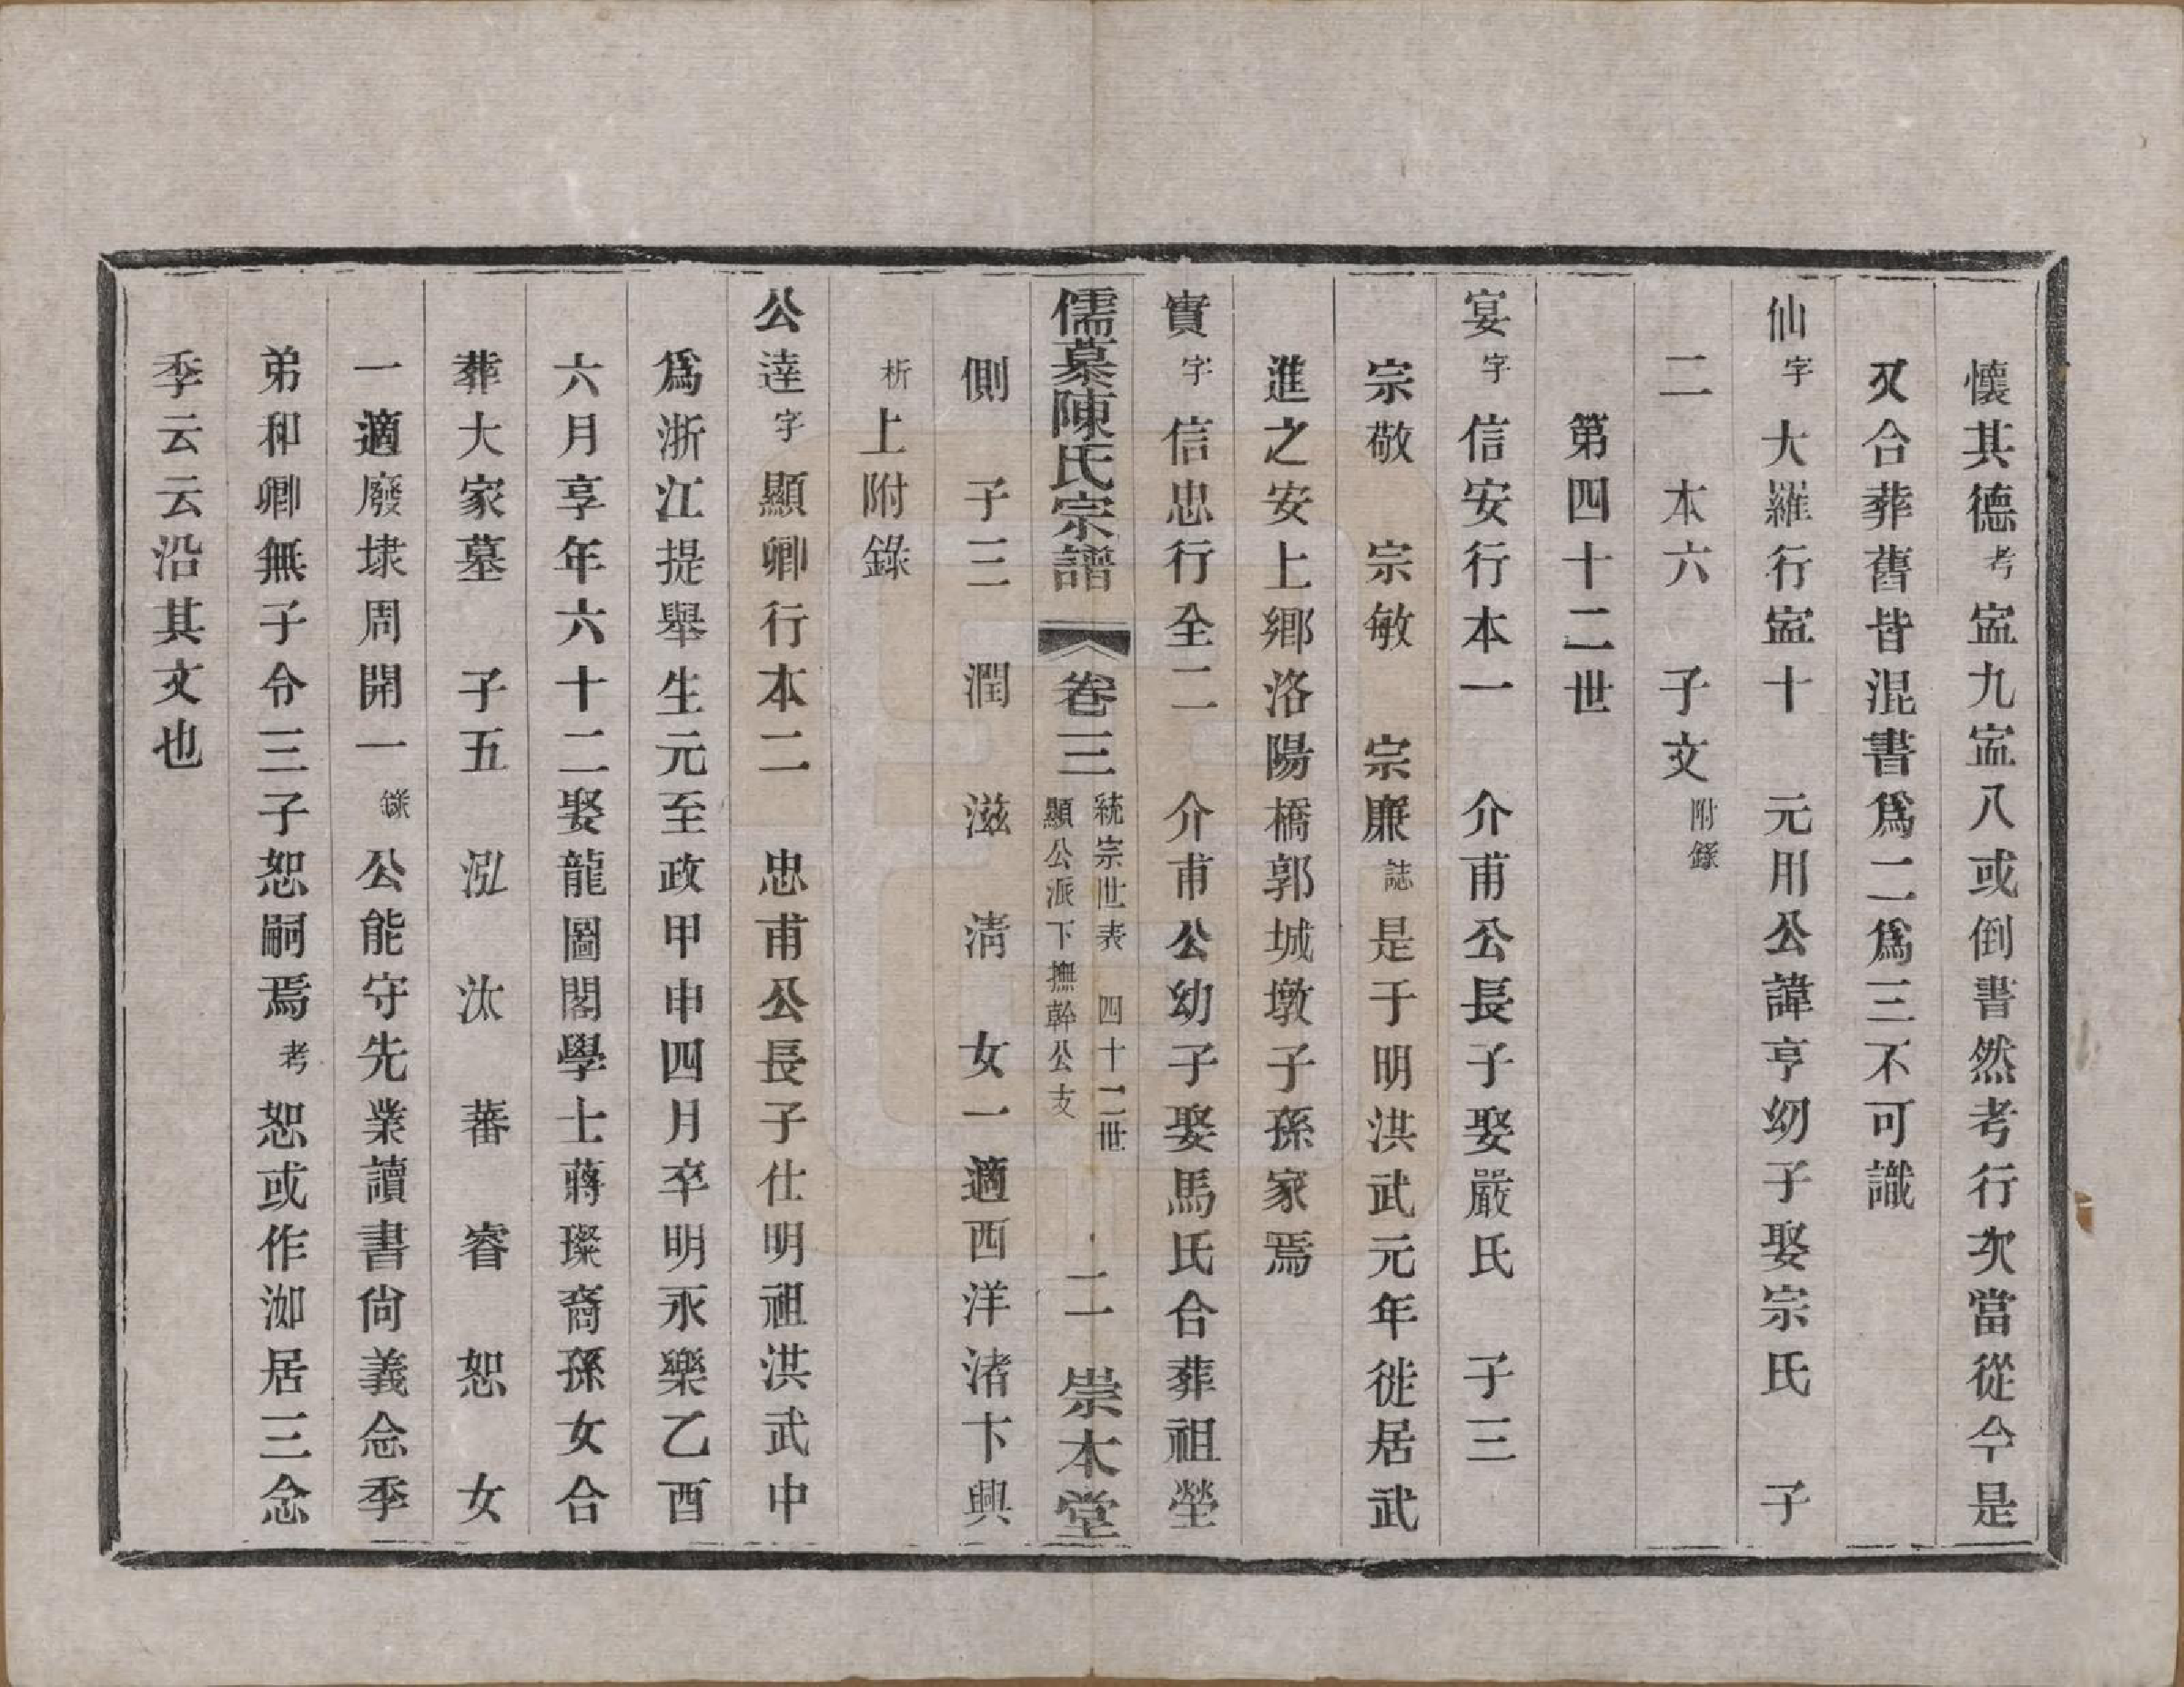 懷其德考寍九寍八或倒書然考行次當從今是
又合葬舊皆混書爲二爲三不可識
仙字大羅行寍十 元用公諱亨幼子娶宗氏 子
二 本六 子文附錄
第四十二世
宴字信安行本一 介甫公長子娶嚴氏 子三
宗敬 宗敏 宗廉誌是于明洪武元年徙居武
進之安上鄉洛陽橋郭城墩子孫家焉
實字信忠行全二 介甫公幼子娶馬氏合葬祖塋
儒慕陳氏宗譜 卷三 統宗世表 四十二世 顯公派下撫幹公支 二 崇本堂
側 子三 潤 滋 淸 女一適西洋渚卞興
析上附錄
公達字顯卿行本二 忠甫公長子仕明祖洪武中
爲浙江提舉生元至政甲申四月卒明永樂乙酉
六月享年六十二娶龍圖閣學士蔣璨裔孫女合
葬大家墓 子五 泓 汰 蕃 睿 恕 女
一適廢埭周開一錄公能守先業讀書尙義念季
弟和卿無子令三子恕嗣焉考恕或作洳居三念
季云云沿其文也